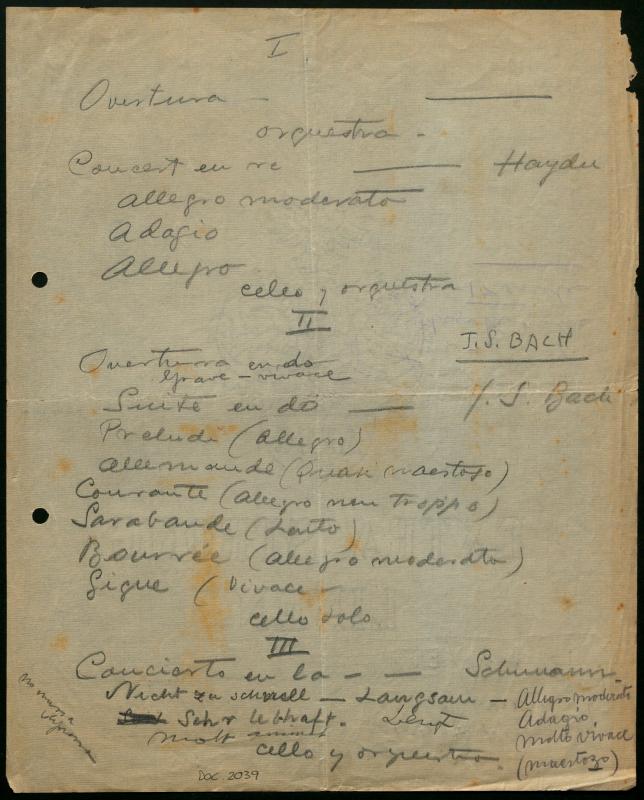 I
Overtura —
orquestra -
Concert en re — Haydn
Allegro moderato
Adagio
Allegro
cello y orquestra
II
J.S. BACH
Overtura en do
Grave - vivace
Suite en do — J. S. Bach
Prelude (Allegro)
Allemande (Quasi maestoso)
Courante (Allegro non troppo)
Sarabande (Lento)
Bourrée (Allegro moderato)
Gigue (Vivace
cello solo
III
Concierto en la - - Schumann
Nicht zu schnell - Langsam - Allegro moderato
Sehr lebhaft. Adagio
Molt molto vivace
cello y orquestra. (maestozo)
DOC. 2039